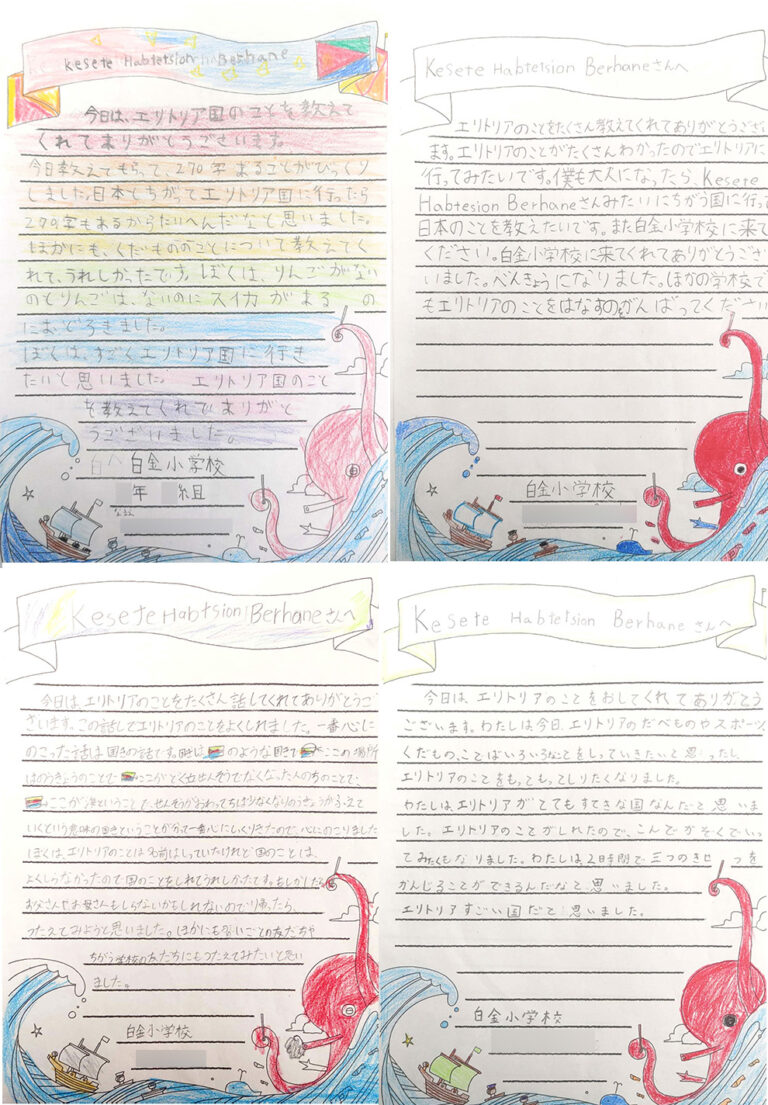 Kesete Habtetsion Berhane
今日は、エリトリア国のことを教えて
くれてありがとうございます。
今日教えてもらって、270字あることがびっくり
しました。日本とちがってエリトリア国に行ったら
270字もあるからたいへんだなと思いました。
ほかにも、くだもののことについて教えてく
れて、うれしかったです。ぼくは、りんごがない
のとりんごは、ないのにスイカがあるの
におどろきました。
ぼくは、すごくエリトリア国に行き
たいと思いました。 エリトリア国のこと
を教えてくれてありがと
うございました。
白金小学校
年 組
Kesete Habtetsion Berhaneさんへ
エリトリアのことをたくさん教えてくれてありがとうござい
ます。エリトリアのことがたくさんわかったのでエリトリアに
行ってみたいです。僕も大人になったら、Kesete
Habtesion Berhaneさんみたいにちがう国に行って
日本のことを教えたいです。また白金小学校に来て
ください。白金小学校に来てくれてありがとうござ
いました。べんきょうになりました。ほかの学校で
もエリトリアのことをはなすのがんばってください
白金小学校
Kesete Habtsion Berhaneさんへ
今日は、エリトリアのことをたくさん話してくれてありがとうご
ざいます。この話しでエリトリアのことをよくしれました。一番心に
のこった話は国きの話です。
のような国きで ここの場所
はのうぎょうのことで ここがとく
せんそうでなくなった人のちのことで、
ここが
ということで、せんそうがおわってちは少なくなりのうぎょうがふえて
いくという意味の国きということが
一番心にしっくりきたので、心にのこりました
ぼくは、エリトリアのことは名前はしっていたけれど国のことは、
よくしらなかったので国のことをしれてうれしかったです。もしかしたら
お父さんやお母さんもしらないかもしれないので帰ったら、
つたえてみようと思いました。ほかにも習いごとの友だちや
ちがう学校の友だちにもつたえてみたいと思い
ました。
白金小学校
Kesete Habtetsion Berhaneさんへ
今日は、エリトリアのことをおしてくれてありがとう
ございます。わたしは今日、エリトリアのたべものやスポーツ、
くだもの、ことばいろいろなことをしっていきたいと思ったし、
エリトリアのことをもっともってしりたくなりました。
わたしは、エリトリアがとてもすてきな国なんだと思いま
した。エリトリアのことがしれたので、こんどかぞくでいっ
てみたくもなりました。わたしは、2日時間で三つのきせつを
かんじることができるんだなと思いました。
エリトリアすごい国だと思いました。
白金小学校